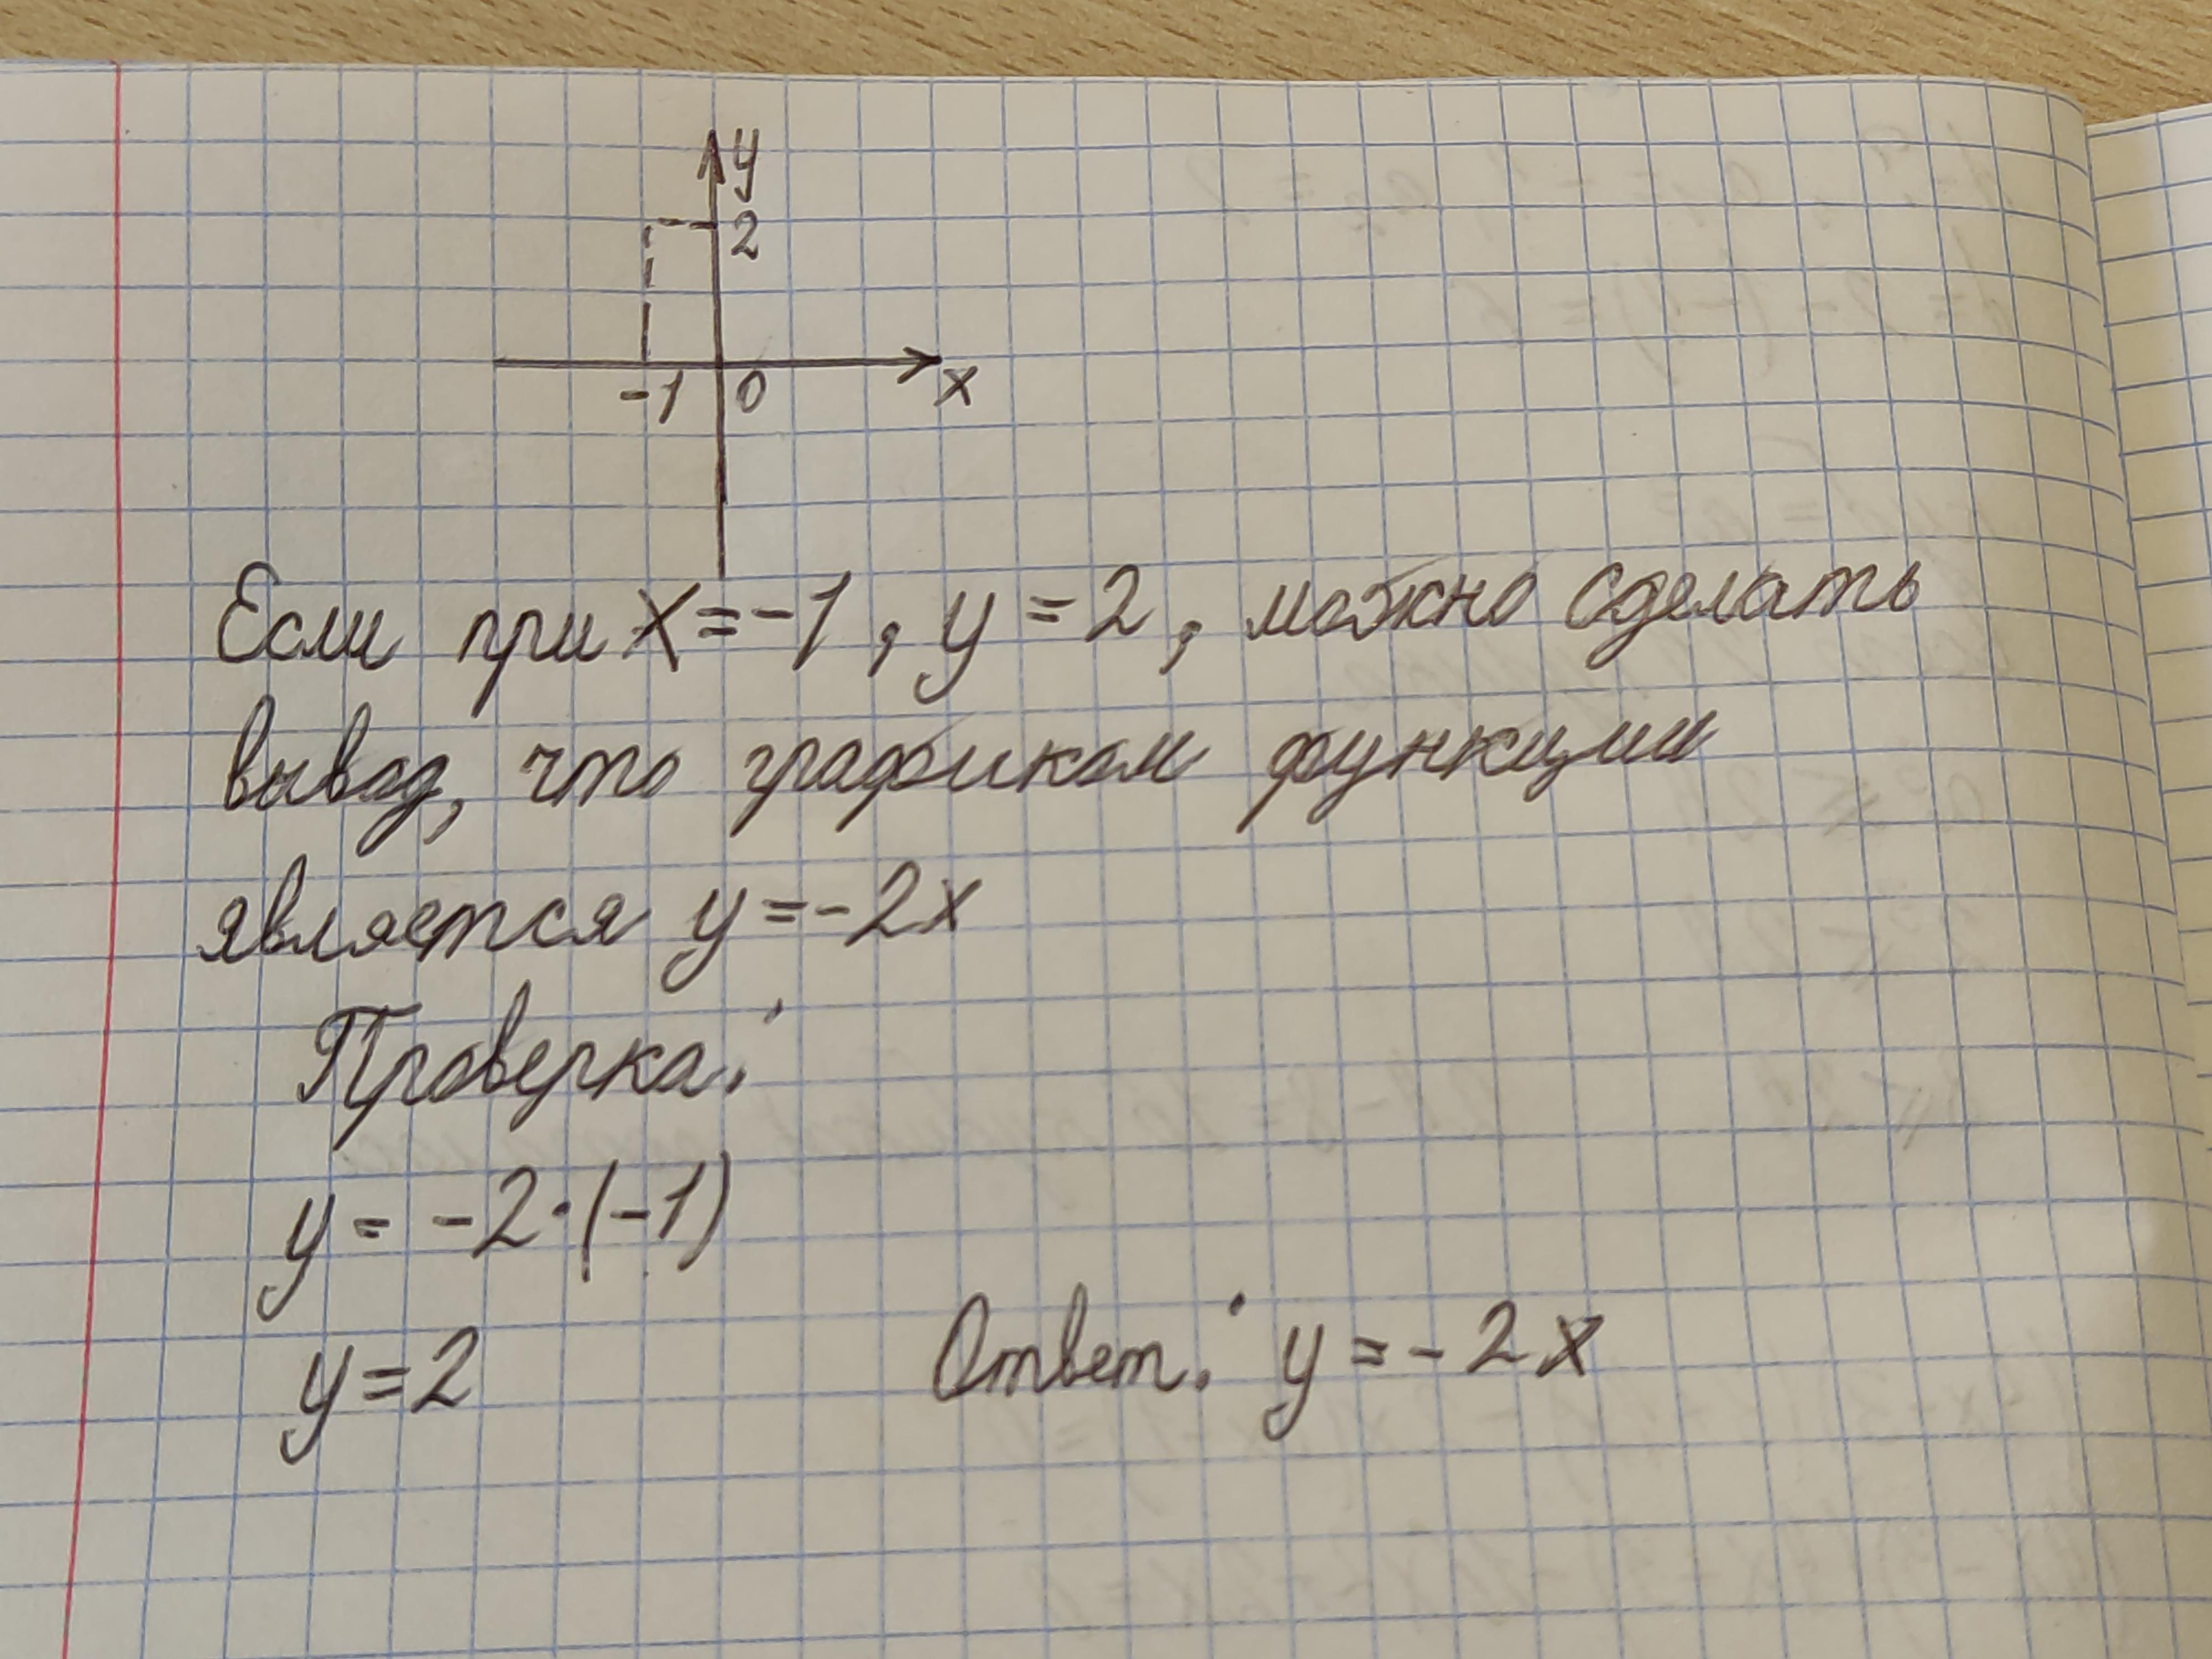 y
2
-1 0 x
Если при x=-1, y=2, можно сделать
вывод, что графиком функции
является y=-2x
Проверка:
y= -2·(-1)
y=2
Ответ: y=-2x